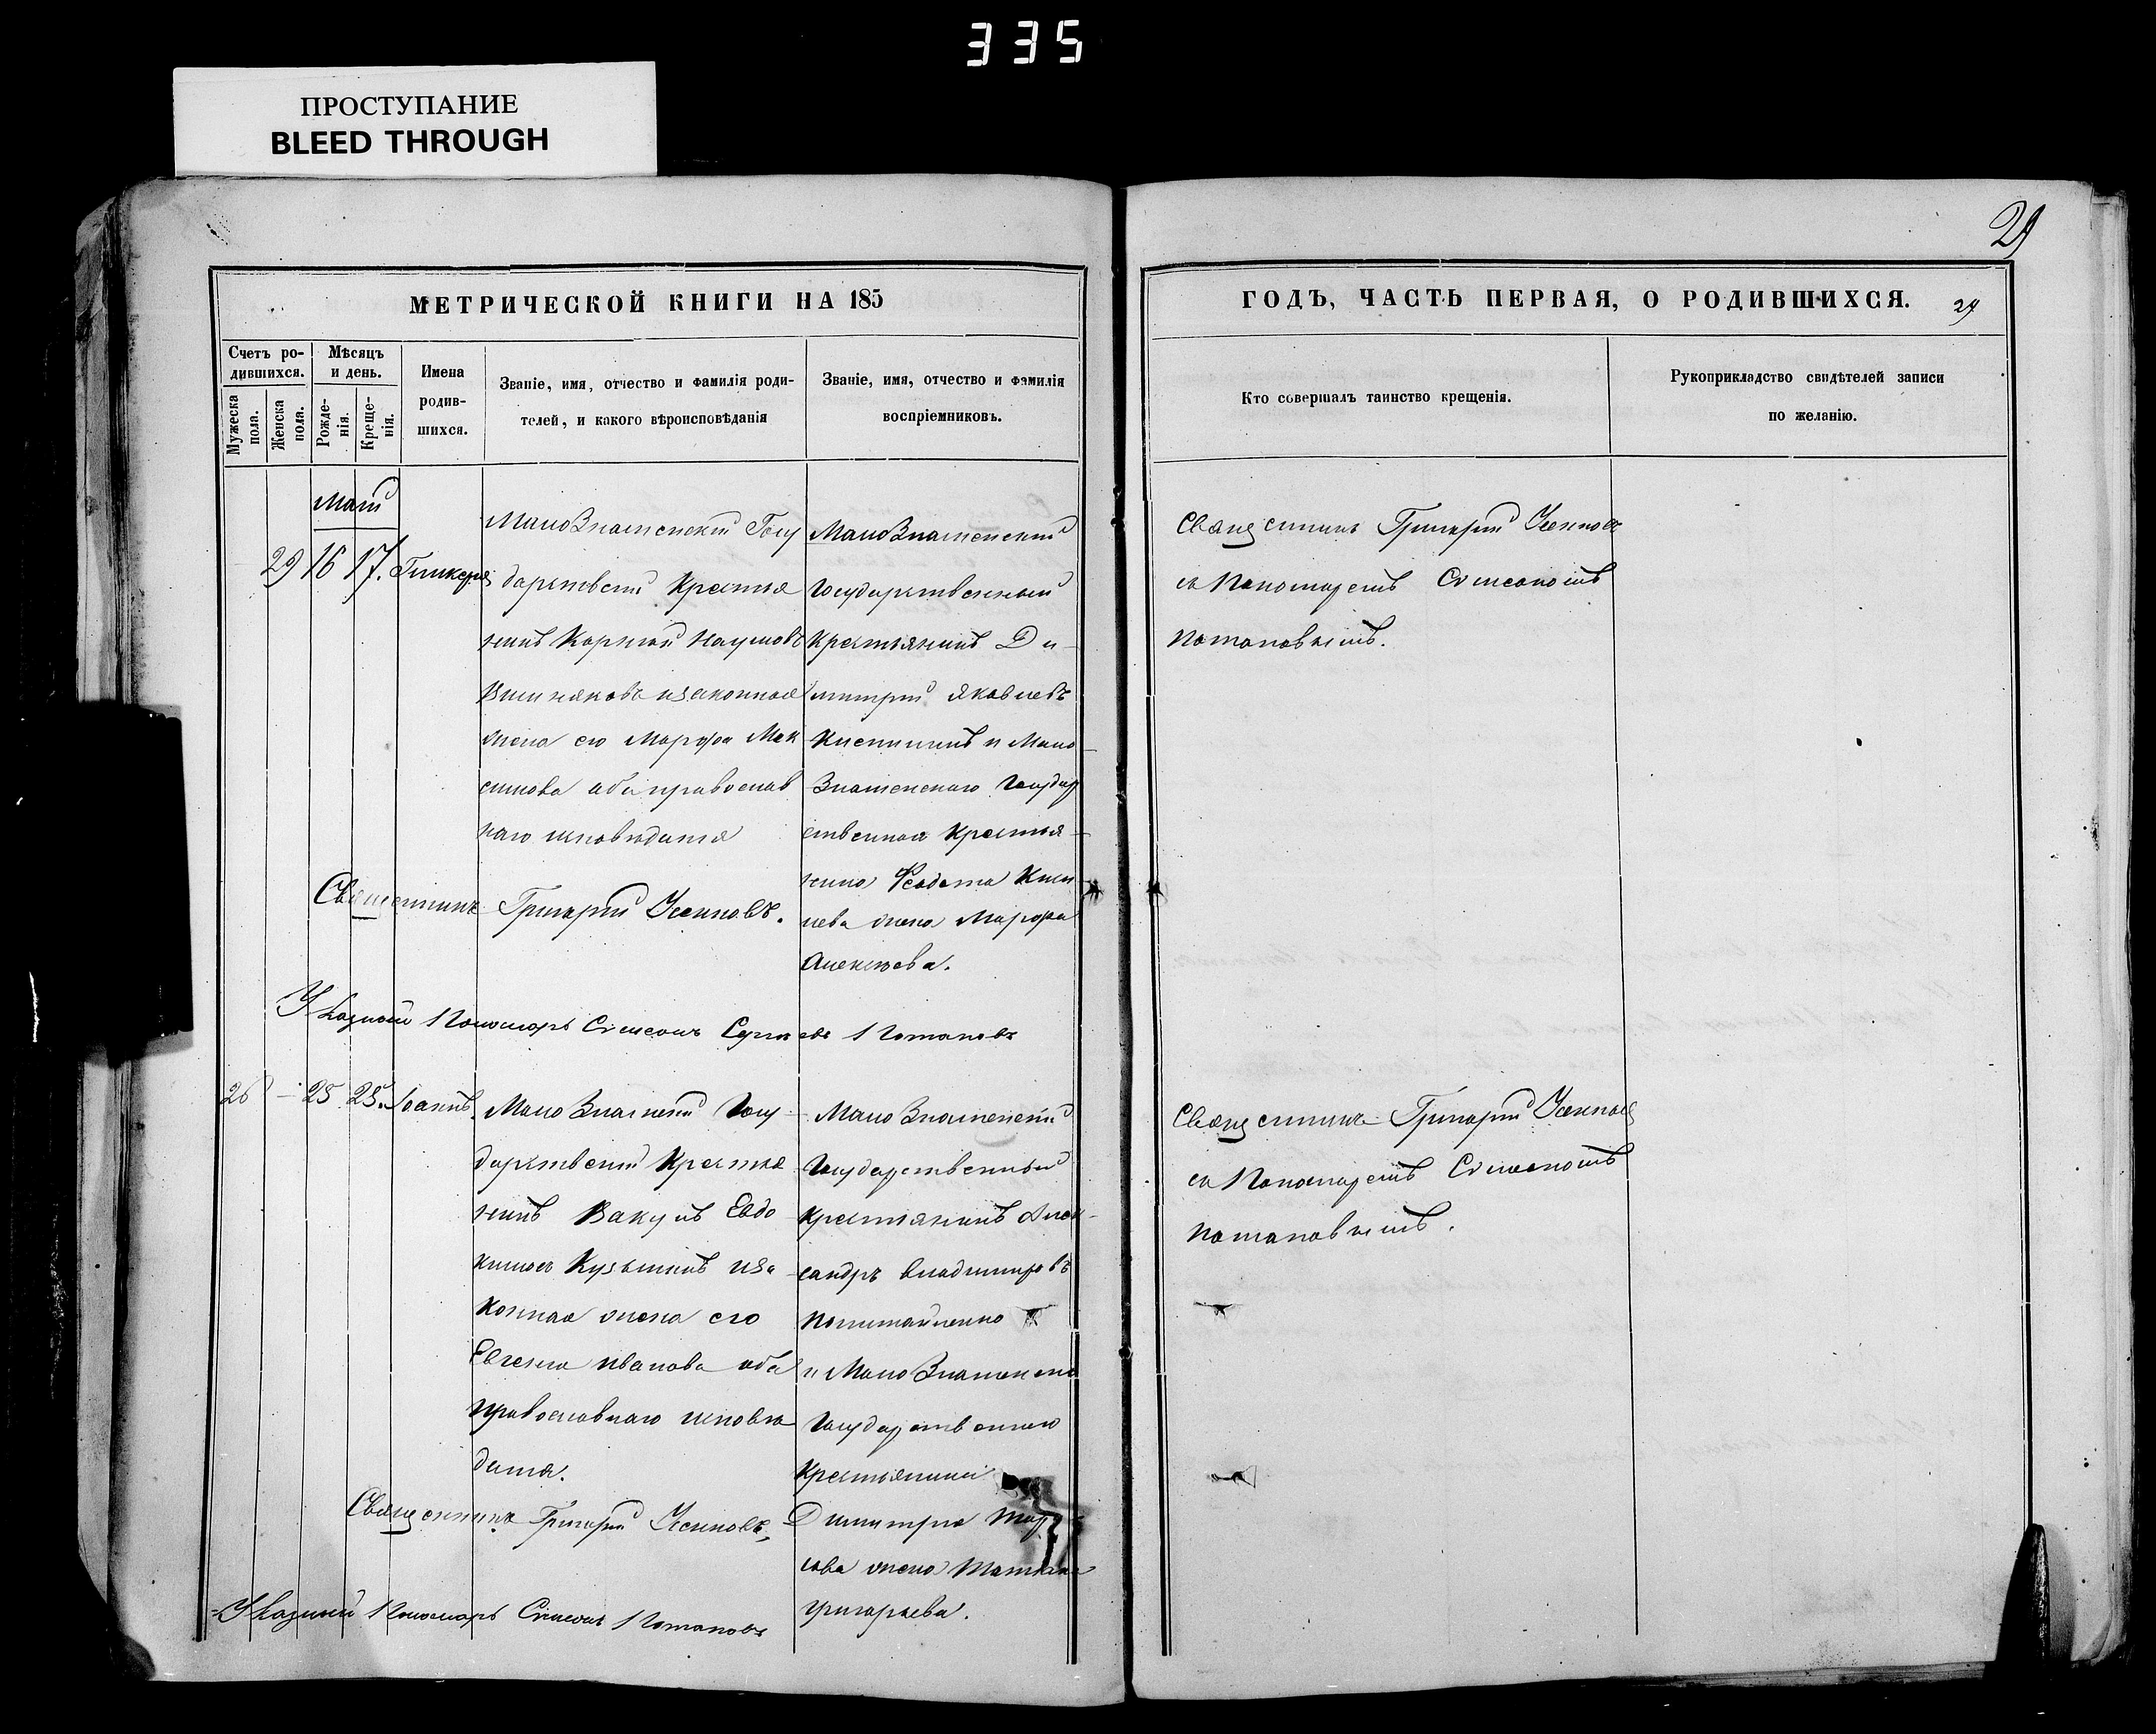 335
ПРОСТУПАНИЕ
BLEED THROUGH
29
МЕТРИЧЕСКОЙ КНИГИ НА 185
Счетъ ро-
дившихся.
Мужеска
пола.
Женска
пола.
Мѣсяцъ
и день.
Рожде-
нія.
Креще-
нія.
Имена
родив-
шихся.
Званіе, имя, отчество и фамилія роди-
телей, и какого вѣроисповѣданія
Званіе, имя, отчество и фамилія
воспріемниковъ.
Маій
29 16 17. Гликерія
МалоЗнаменскій Госу
дарственій Крестья
нинъ Корнилій Наумовъ
Вишняковъ изаконная
жена его Марфа Мак
симова оба православ
наго исповѣданія
МалоЗнаменскій
Государственный
Крестьянинъ Ди-
митрій Яковлевъ
и Мало
Знаменскаго Государ
ственнаго Крестья-
нина Феодота
жена Марфа
Алексѣева.
Священникъ Григорій Усенновъ.
Указной Пономарь Симеонъ Потаповъ
26 - 25 25. Іоаннъ.
Мало Знаменскій Госу-
дарственій Крестья
нинъ Вакулъ Евдо
кимовъ Кузьминъ иза
конная жена его
Евгенія Иванова оба
православнаго исповѣ
данія.
Мало Знаменскій
Государственный
Крестьянинъ Алек-
сандръ Владимировъ
и МалоЗнаменскаго
Государственнаго
Крестьянина
Димитрія
жена Татіана
Григорьева.
Священникъ Григорій Усенновъ,
Указной Пономарь Симеонъ Потаповъ
ГОДЪ, ЧАСТЬ ПЕРВАЯ, О РОДИВШИХСЯ. 29
Кто совершалъ таинство крещенія.
Рукоприкладство свидѣтелей записи
по желанію.
Священникъ Григорій Усенновъ
съ Пономаремъ Симеономъ
Потаповымъ.
Священникъ Григорій Усенновъ
съ Пономаремъ Симеономъ
Потаповымъ.